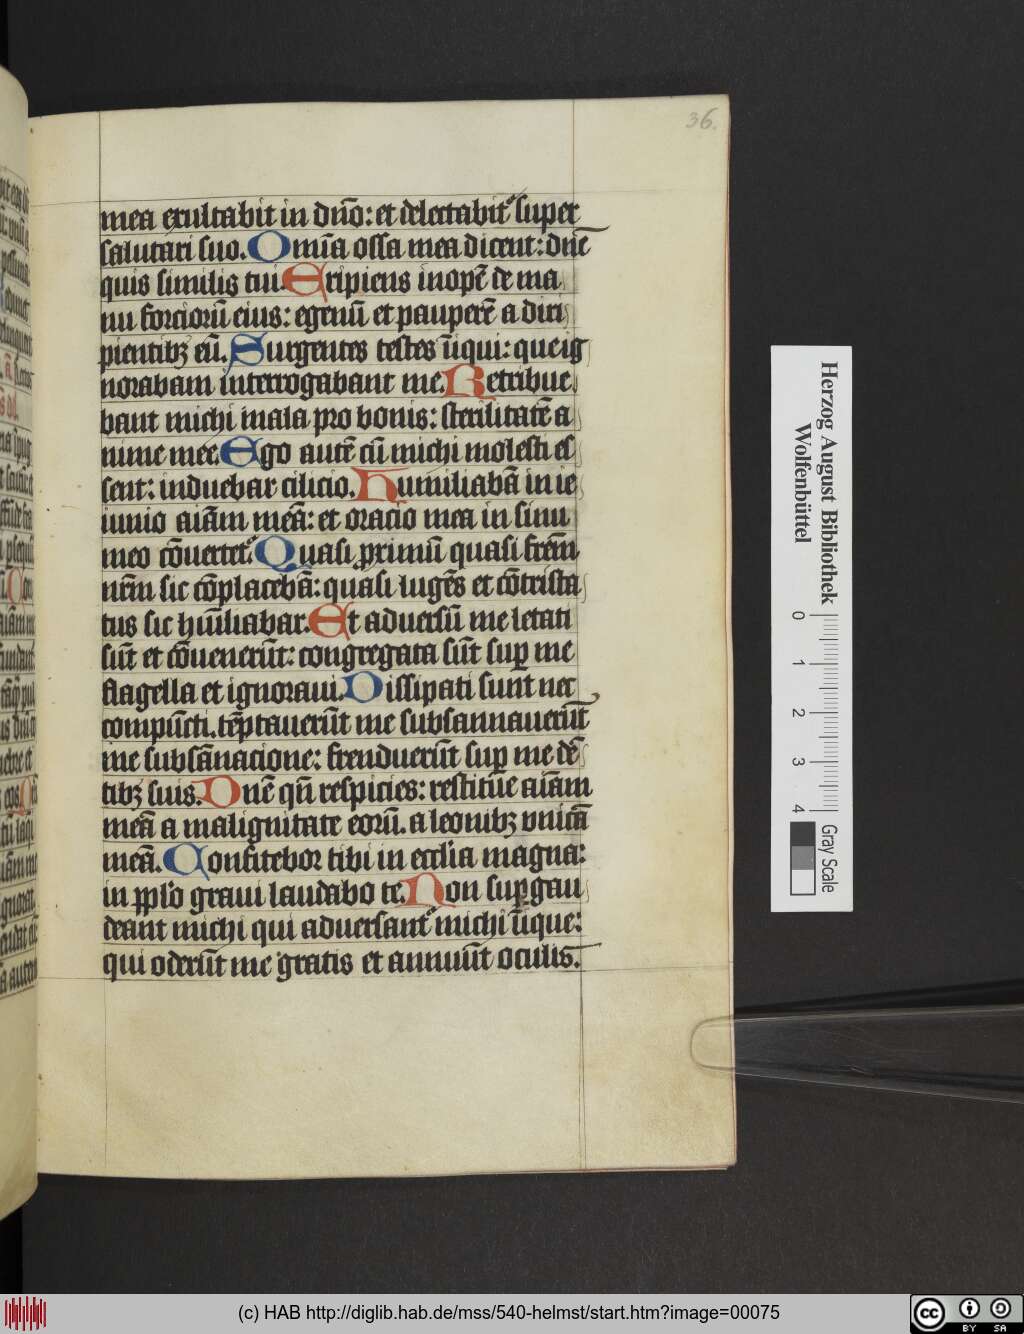 36.
mea exultabit in dn̄o: et delectabit᷑ super
salutari suo. Om̄ia ossa mea dicent: dn̄e
quis similis tui. Eripiens inopē de ma
nu forciorū eius: egenū et pauperē a diri
pientibꝫ eū. Surgentes testes īiqui: que ig
norabam interrogabant me. Retribue
bant michi mala pro bonis: sterilitatē a
nime mee. Ego autē cū michi molesti es
sent: induebar cilicio. Humiliabā in ie
iunio aīam meā: et oracio mea in sinu
meo cōuertet᷑. Quasi ꝓximū quasi frēm
nr̄m sic cōplacebā: quasi lugēs et cōtrista
tus sic hūiliabar. Et aduersū me letati
sūt et cōuenerūt: congregata sūt suꝑ me
flagella et ignoraui. Dissipati sunt nec
compūcti. tēptauerūt me subsannauerūt
me subsānacione: frenduerūt suꝑ me dē
tibꝫ suis. Dn̄e qn̄ respicies: restitūe aīam
meā a malignitate eorū. a leonibꝫ vnicā
meā. Confitebor tibi in eccl̄ia magna:
in ppl̄o graui laudabo te. Non suꝑgau
deant michi qui aduersant᷑ michi īique:
qui oderūt me gratis et annuūt oculis.
Herzog August Bibliothek
Wolfenbüttel
0 1 2 3 4
Gray Scale
(c) HAB http://diglib.hab.de/mss/540-helmst/start.htm?image=00075
cc BY SA